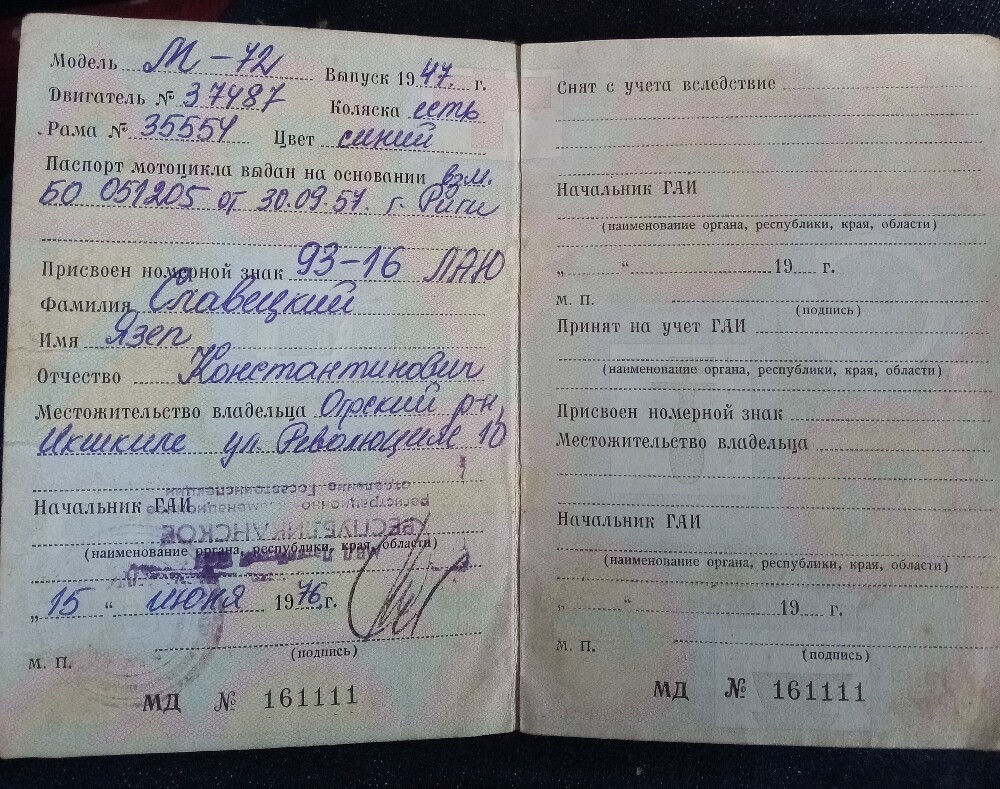 Модель М-72 Выпуск 1947. г.
Двигатель № 37487 Коляска есть
Рама № 35554 Цвет синий
Паспорт мотоцикла выдан на основании взм.
БО 051205 от 30.09.57. г. Риги
Присвоен номерной знак 93-16 ЛАЮ
Фамилия Славецкий
Имя Язеп
Отчество Константинович
Местожительство владельца Огрский р-н,
Икшкиле ул. Революцияс 10
отделение Госавтоинспекции
Начальник ГАИ
РЕСПУБЛИКАНСКОЕ
(наименование органа, республики, края, области)
„15“ июня 1976 г.
(подпись)
М. П.
МД № 161111
Снят с учета вследствие
Начальник ГАИ
(наименование органа, республики, края, области)
„ “ 19 г.
М. П.
(подпись)
Принят на учет ГАИ
(наименование органа, республики, края, области)
Присвоен номерной знак
Местожительство владельца
Начальник ГАИ
(наименование органа, республики, края, области)
„ “ 19 г.
М. П.
(подпись)
МД № 161111